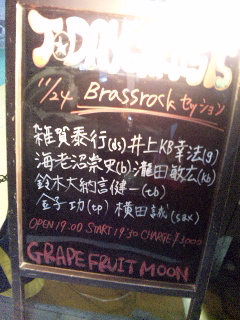 TODAY'S
11/24 Brassrock セッション
雑賀泰行(ds) 井上KB幸法(g)
海老沼崇史(b) 瀧田敏広(kb)
鈴木大納言健一(tb)
金子功(tp) 横田誠(sax)
OPEN 19:00 START 19:30 CHARGE ¥3,000
GRAPEFRUIT MOON